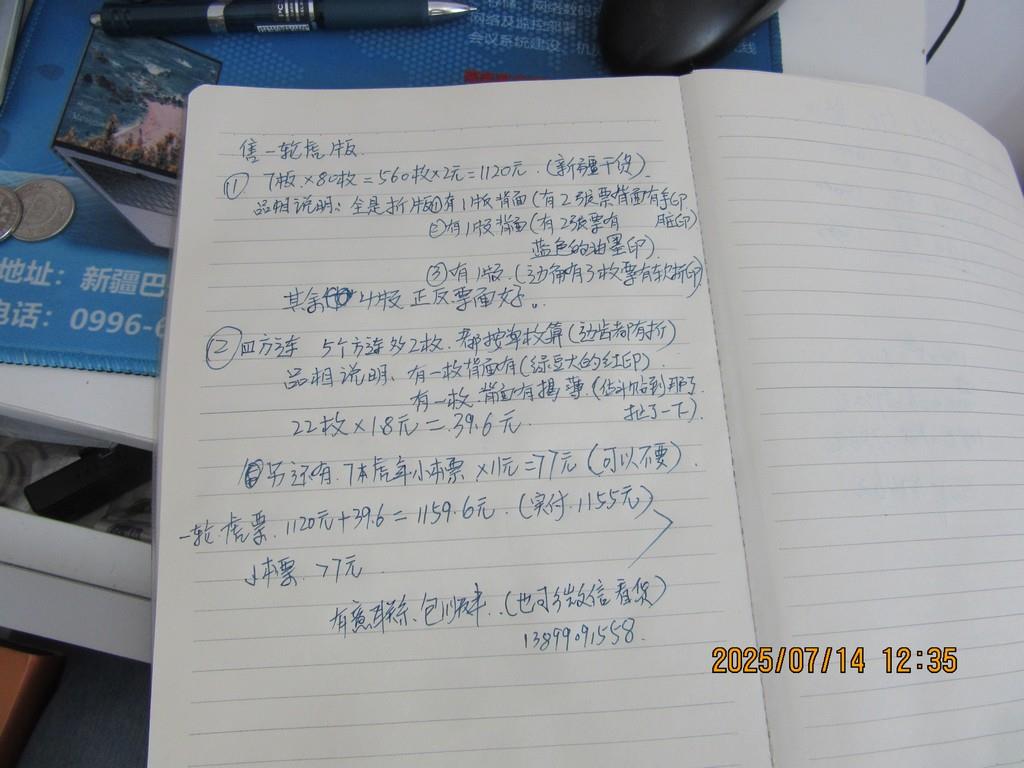 网络及监控部
会议系统建设、机
线
地址：新疆巴
电话：0996-6
售一轮虎版.
① 7版.×80枚=560枚×2元=1120元.(新疆干货).
品相说明：全是折版①有1版背面(有2张票背面有手印
②有1版背面(有2张票有 脏印)
蓝色的油墨印)
③有1版.(边角有3枚票有软折印)
其余 4版 正反票面好。.
② 四方连 5个方连多2枚.都按单枚算(边齿都有折)
品相说明、有一枚背面有(绿豆大的红印).
有一枚.背面有揭薄(估计贴到那了.
扯了一下).
22枚×1.8元=39.6元.
另还有.7本虎年小本票×11元=77元(可以不要).
一轮.虎票.1120元+39.6=1159.6元.(实付.1155元)
小本票.77元
有意联系、包顺丰..(也可多微信看货)
13899091558.
2025/07/14 12:35